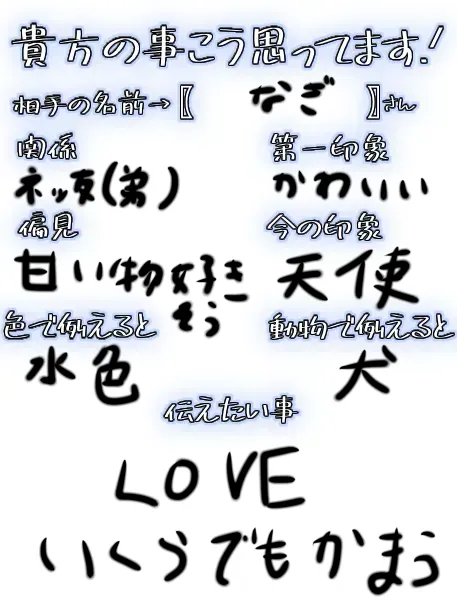 貴方の事こう思ってます!
相手の名前→〖 なぎ 〗さん
関係 第一印象
ネッ友(弟) かわいい
偏見 今の印象
甘い物好き 天使
そう
色で例えると 動物で例えると
水色 犬
伝えたい事
LOVE
いくらでもかまう